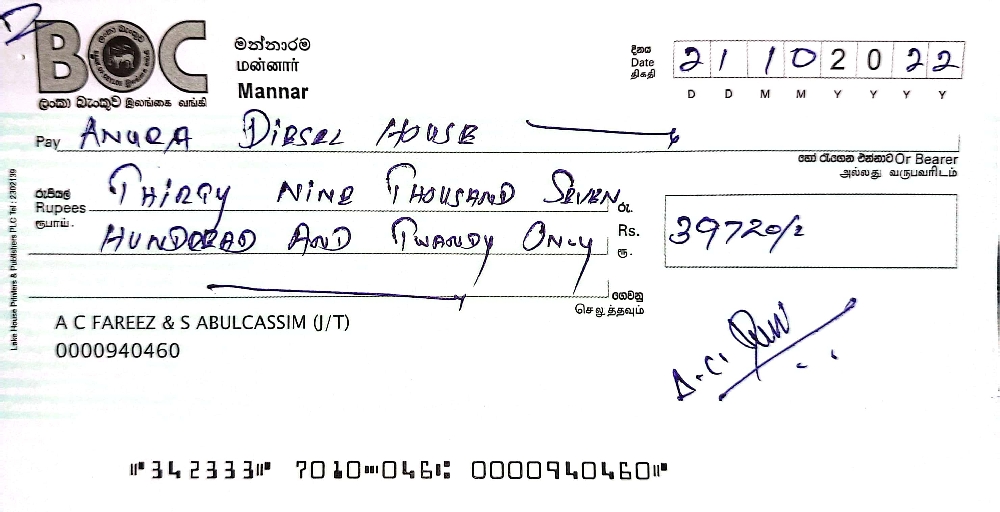 BOC
ලංකා බැංකුව இலங்கை வங்கி
මන්නාරම
மன்னார்
Mannar
දිනය
Date 21 10 2022
திகதி
D D M M Y Y Y Y
Pay ANURA DIESEL HOUSE
හෝ රැගෙන එන්නාට Or Bearer
அல்லது வருபவரிடம்
රුපියල් THIRTY NINE THOUSAND SEVEN රු.
Rupees Rs. 39720/=
ரூபாய். HUNDORAD AND TWANDY ONLY ரூ.
ගෙවනු
செலுத்தவும்
A C FAREEZ & S ABULCASSIM (J/T)
0000940460
A.C.
Lake House Printers & Publishers PLC Tel : 2302199
⑈342333⑈ 7010⑉046⑆ 0000940460⑈